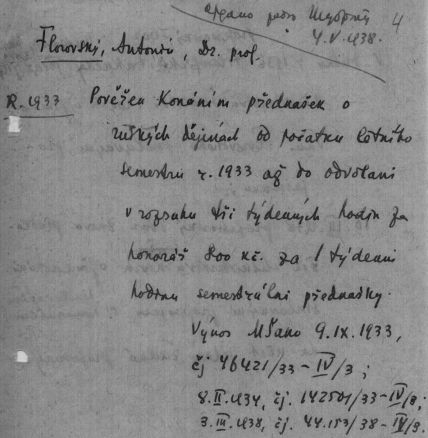 4
4.V.1938.
Florovský, Antonín, Dr. prof.
R. 1933 Pověřen konáním přednášek o
ruských dějinách od počátku letního
semestru r. 1933 až do odvolání
v rozsahu tří týdenných hodin za
honorář 800 Kč. za 1 týdenní
hodinu semestrální přednášky.
Výnos MŠANO 9.IX.1933,
čj 46421/33-IV/3;
8.II.1934, čj. 142501/33-IV/3;
3.III.1938, čj. 44.153/38-IV/3.